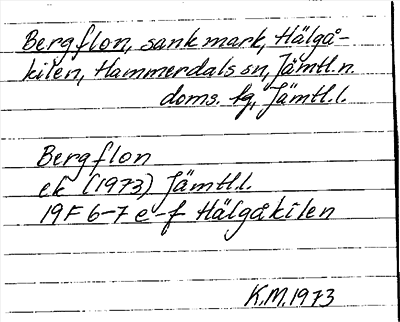 Bergflon, sank mark, Hälgå-
kilen, Hammerdals sn, Jämtl.n.
doms. tg, Jämtl.l.
Bergflon
ek (1973) Jämtl.l.
19F 6-7 e-f Hälgåkilen
K.M.1973